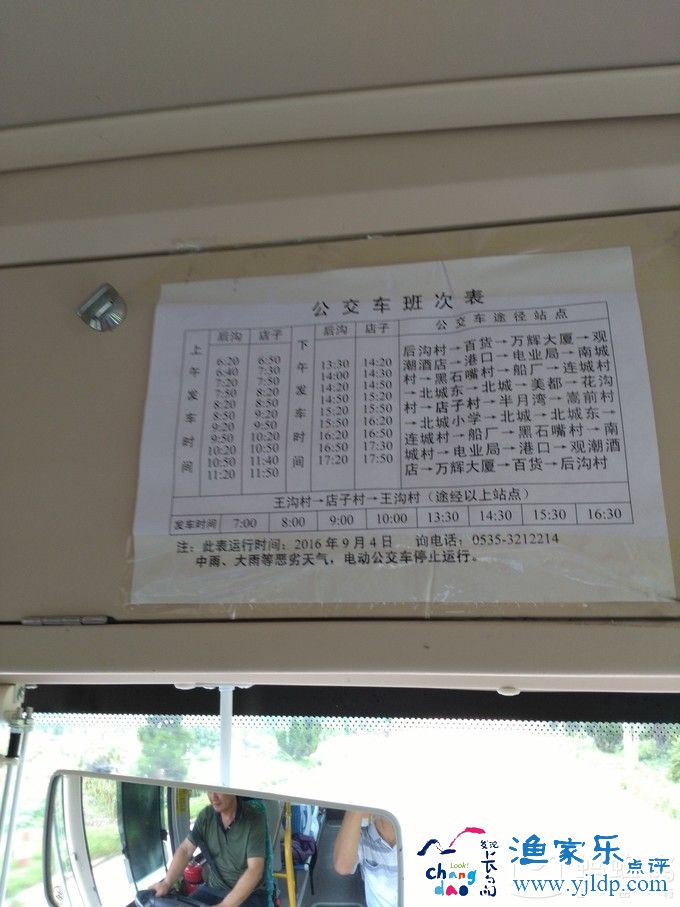 公交车班次表
上午发车时间
后沟 店子
6:20 6:50
6:40 7:30
7:20 7:50
7:50 8:20
8:20 8:50
8:50 9:20
9:20 9:50
9:50 10:20
10:20 10:50
10:50 11:40
11:20 11:50
下午发车时间
后沟 店子
13:30 14:20
14:00 14:30
14:20 14:50
14:50 15:20
15:20 15:50
15:50 16:20
16:20 16:50
16:50 17:30
17:20 17:50
公交车途径站点
后沟村→百货→万辉大厦→观
潮酒店→港口→电业局→南城
村→黑石嘴村→船厂→连城村
→北城东→北城→美都→花沟
村→店子村→半月湾→嵩前村
→北城小学→北城→北城东→
连城村→船厂→黑石嘴村→南
城村→电业局→港口→观潮酒
店→万辉大厦→百货→后沟村
王沟村→店子村→王沟村（途经以上站点）
发车时间 7:00 8:00 9:00 10:00 13:30 14:30 15:30 16:30
注：此表运行时间：2016年9月4日 询电话：0535-3212214
中雨、大雨等恶劣天气，电动公交车停止运行。
Look!
chang
dao
发现
长岛
渔家乐点评
www.yjldp.com